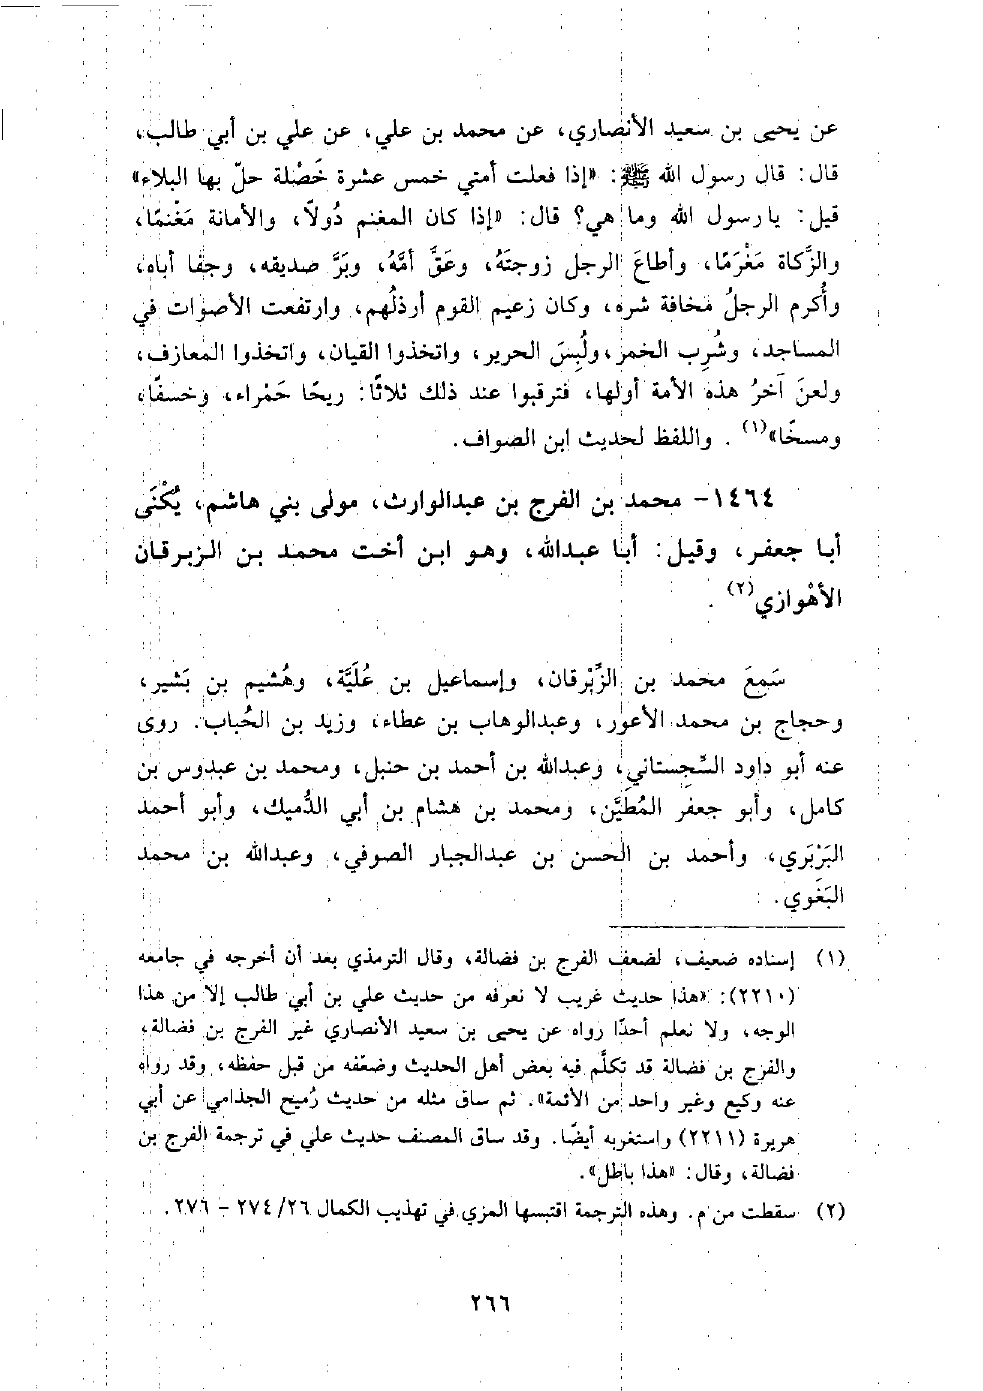 عن يحيى بن سعيد الأنصاري، عن محمد بن علي، عن علي بن أبي طالب،
قال: قال رسول الله ﷺ: «إذا فعلت أمتي خمس عشرة خَصْلة حلّ بها البلاء»
قيل: يا رسول الله وما هي؟ قال: «إذا كان المغنم دُولاً، والأمانة مَغْنمًا،
والزَّكاة مَغْرَمًا، وأطاعَ الرجل زوجتَهُ، وعَقَّ أمَّهُ، وبَرَّ صديقه، وجفا أباه،
وأُكرم الرجلُ مخافة شره، وكان زعيم القوم أرذلُهم، وارتفعت الأصوات في
المساجد، وشُرِب الخمر، ولُبِسَ الحرير، واتخذوا القيان، واتخذوا المعازف،
ولعنَ آخرُ هذه الأمة أولها، فترقبوا عند ذلك ثلاثًا: ريحًا حَمْراء، وخسفًا،
ومسخًا»(١). واللفظ لحديث ابن الصواف.
١٤٦٤- محمد بن الفرج بن عبدالوارث، مولى بني هاشم، يُكْنَى
أبا جعفر، وقيل: أبا عبدالله، وهو ابن أخت محمد بن الزبرقان
الأهْوازي(٢).
سَمِعَ محمد بن الزِّبْرقان، وإسماعيل بن عُلَيَّة، وهُشيم بن بَشير،
وحجاج بن محمد الأعور، وعبدالوهاب بن عطاء، وزيد بن الحُباب. روى
عنه أبو داود السِّجستاني، وعبدالله بن أحمد بن حنبل، ومحمد بن عبدوس بن
كامل، وأبو جعفر المُطَيَّن، ومحمد بن هشام بن أبي الدُّميك، وأبو أحمد
البَرْبَري، وأحمد بن الحسن بن عبدالجبار الصوفي، وعبدالله بن محمد
البَغَوي.
(١) إسناده ضعيف، لضعف الفرج بن فضالة، وقال الترمذي بعد أن أخرجه في جامعه
(٢٢١٠): «هذا حديث غريب لا نعرفه من حديث علي بن أبي طالب إلا من هذا
الوجه، ولا نعلم أحدًا رواه عن يحيى بن سعيد الأنصاري غير الفرج بن فضالة،
والفرج بن فضالة قد تكلَّم فيه بعض أهل الحديث وضعّفه من قبل حفظه، وقد رواه
عنه وكيع وغير واحد من الأئمة». ثم ساق مثله من حديث رُميح الجذامي عن أبي
هريرة (٢٢١١) واستغربه أيضًا. وقد ساق المصنف حديث علي في ترجمة الفرج بن
فضالة، وقال: «هذا باطل».
(٢) سقطت من م. وهذه الترجمة اقتبسها المزي في تهذيب الكمال ٢٦/ ٢٧٤ - ٢٧٦.
٢٦٦